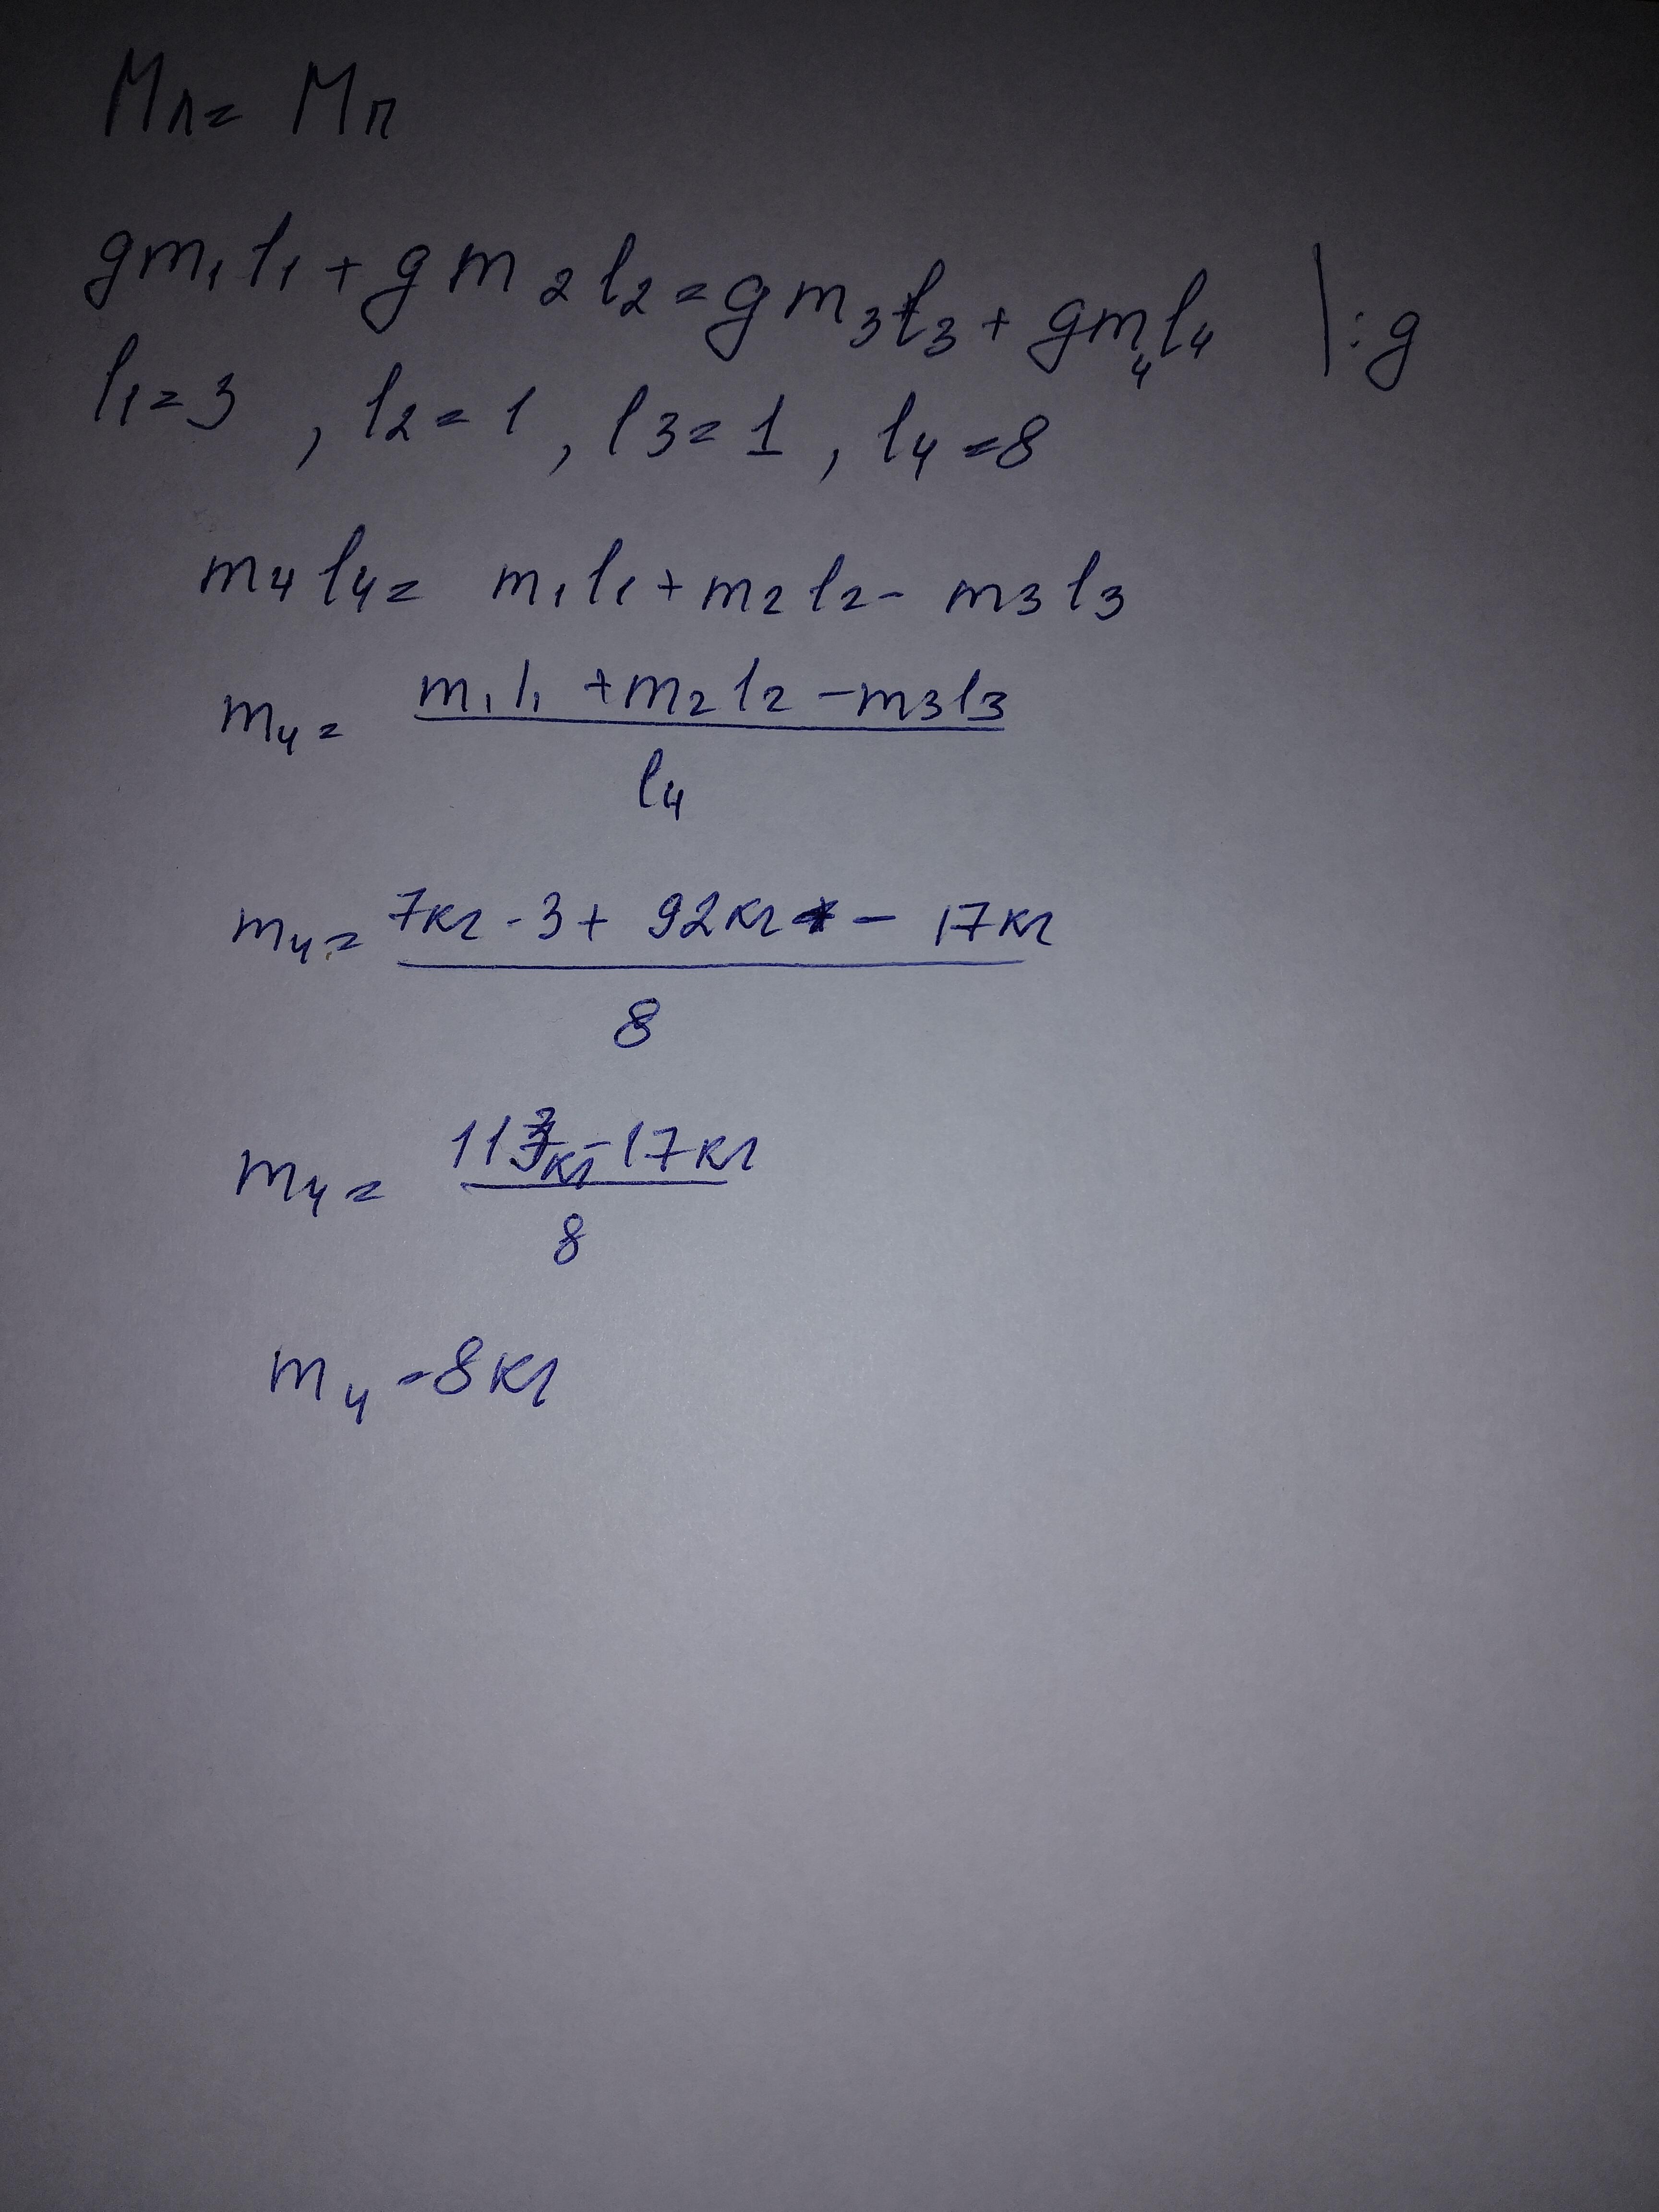 Mл = Mп
gm₁l₁ + gm₂l₂ = gm₃l₃ + gm₄l₄ | : g
l₁ = 3 , l₂ = 1 , l₃ = 1 , l₄ = 8
m₄l₄ = m₁l₁ + m₂l₂ - m₃l₃
m₄ = m₁l₁ + m₂l₂ - m₃l₃
l₄
m₄ = 7кг · 3 + 92кг - 17кг
8
m₄ = 113кг - 17кг
8
m₄ = 8кг